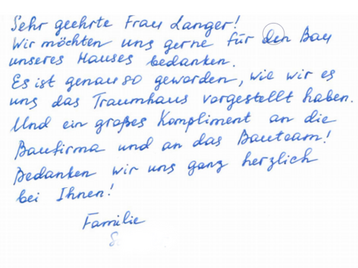 Sehr geehrte Frau Langer!
Wir möchten uns gerne für den Bau
unseres Hauses bedanken.
Es ist genau so geworden, wie wir es
uns das Traumhaus vorgestellt haben.
Und ein großes Kompliment an die
Baufirma und an das Bauteam!
Bedanken wir uns ganz herzlich
bei Ihnen!
Familie
S